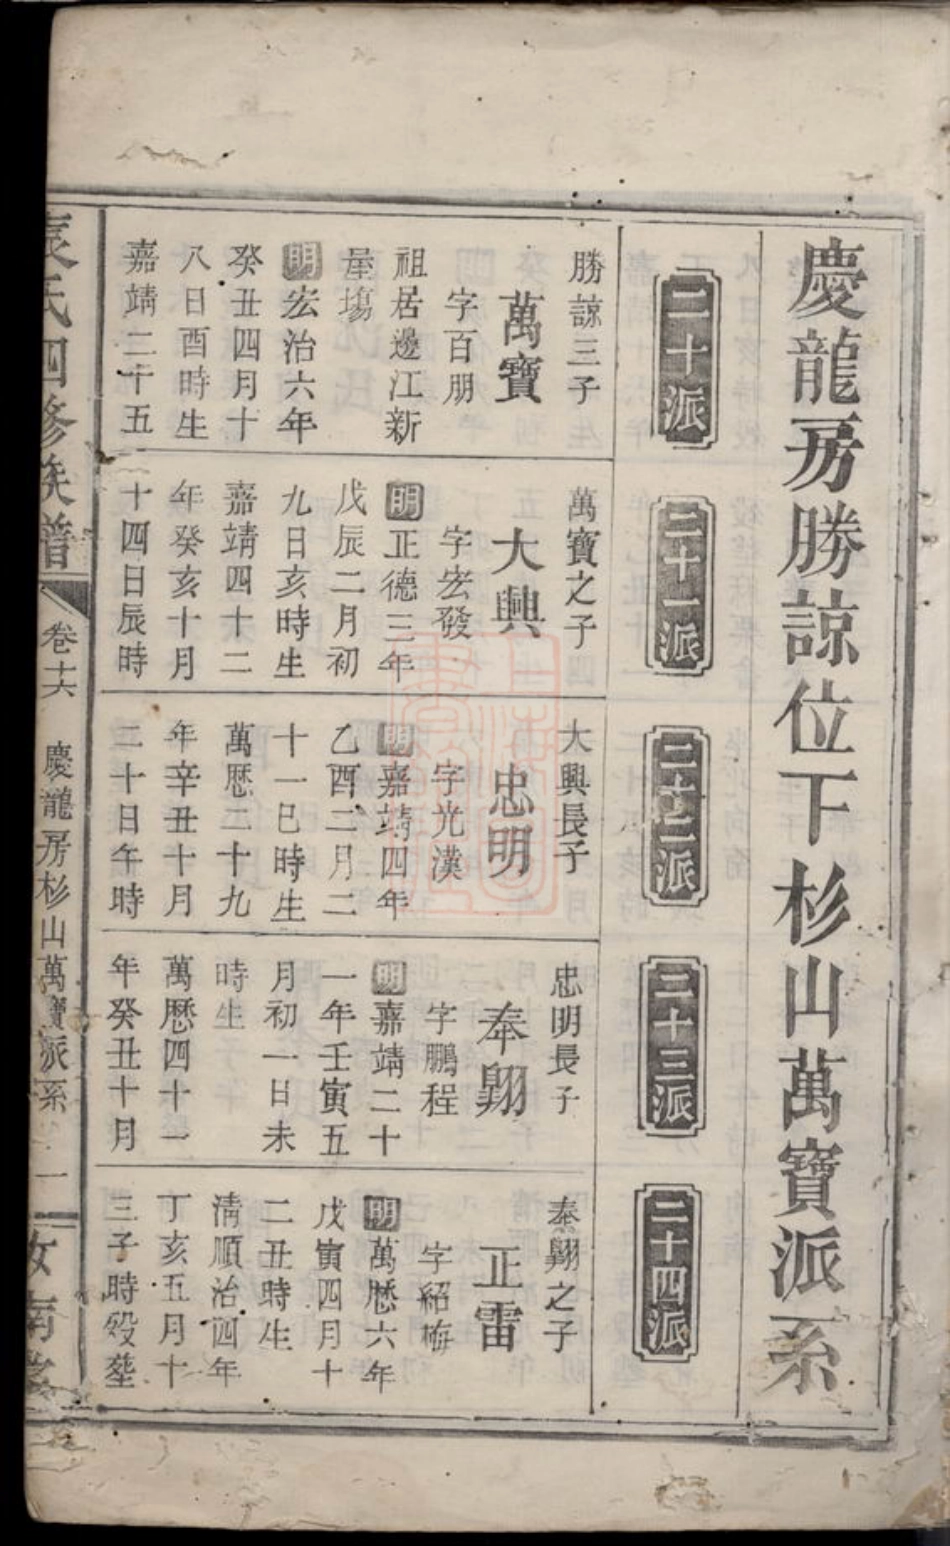 慶龍房勝諒位下杉山萬寶派系
二十派
二十一派
二十二派
二十三派
二十四派
勝諒三子
萬寶
字百朋
祖居邊江新
屋塲
明宏治六年
癸丑四月十
八日酉時生
嘉靖二十五
萬寶之子
大興
字宏發
明正德三年
戊辰二月初
九日亥時生
嘉靖四十二
年癸亥十月
十四日辰時
大興長子
忠明
字光漢
明嘉靖四年
乙酉二月二
十一巳時生
萬厯二十九
年辛丑十月
二十日午時
忠明長子
奉翺
字鵬程
明嘉靖二十
一年壬寅五
月初一日未
時生
萬厯四十一
年癸丑十月
奉翺之子
正雷
字紹梅
明萬厯六年
戊寅四月十
二丑時生
清順治四年
丁亥五月十
三子時殁塟
袁氏四修族譜
卷十六
慶龍房杉山萬寶派系
一
汝南堂